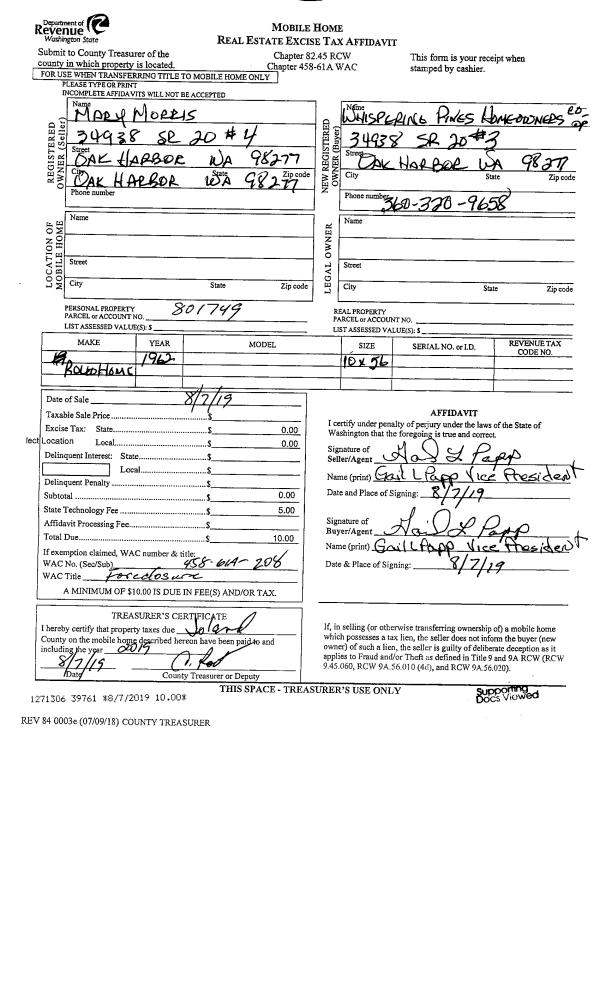 Department of
Revenue
Washington State
MOBILE HOME
REAL ESTATE EXCISE TAX AFFIDAVIT
Submit to County Treasurer of the
county in which property is located.
Chapter 82.45 RCW
Chapter 458-61A WAC
This form is your receipt when
stamped by cashier.
FOR USE WHEN TRANSFERRING TITLE TO MOBILE HOME ONLY
PLEASE TYPE OR PRINT
INCOMPLETE AFFIDAVITS WILL NOT BE ACCEPTED
REGISTERED
OWNER (Seller)
Name
MARY MORRIS
34938 SR 20 #4
Street
OAK HARBOR WA 98277
City State Zip code
OAK HARBOR WA 98277
Phone number
NEW REGISTERED
OWNER (Buyer)
Name
WHISPERING PINES HOMEOWNERS CO-OP
34938 SR 20 #3
Street
OAK HARBOR WA 98277
City State Zip code
Phone number 360-320-9658
LOCATION OF
MOBILE HOME
Name
Street
City State Zip code
LEGAL OWNER
Name
Street
City State Zip code
PERSONAL PROPERTY
PARCEL or ACCOUNT NO. 801749
LIST ASSESSED VALUE(S): $
REAL PROPERTY
PARCEL or ACCOUNT NO.
LIST ASSESSED VALUE(S): $
MAKE YEAR MODEL SIZE SERIAL NO. or I.D. REVENUE TAX
CODE NO.
1962 10 x 56
ROLLOHOME
Date of Sale 8/7/19
Taxable Sale Price $
Excise Tax: State $ 0.00
lect Location Local $ 0.00
Delinquent Interest: State $
Local $
Delinquent Penalty $
Subtotal $ 0.00
State Technology Fee $ 5.00
Affidavit Processing Fee $
Total Due $ 10.00
If exemption claimed, WAC number & title:
WAC No. (Sec/Sub) 458-61A-208
WAC Title foreclosure
A MINIMUM OF $10.00 IS DUE IN FEE(S) AND/OR TAX.
AFFIDAVIT
I certify under penalty of perjury under the laws of the State of
Washington that the foregoing is true and correct.
Signature of
Seller/Agent Gail L Papp
Name (print) Gail L Papp Vice President
Date and Place of Signing: 8/7/19
Signature of
Buyer/Agent Gail L Papp
Name (print) Gail L Papp Vice President
Date & Place of Signing: 8/7/19
TREASURER'S CERTIFICATE
I hereby certify that property taxes due Island
County on the mobile home described hereon have been paid to and
including the year 2019
8/7/19
Date County Treasurer or Deputy
If, in selling (or otherwise transferring ownership of) a mobile home
which possesses a tax lien, the seller does not inform the buyer (new
owner) of such a lien, the seller is guilty of deliberate deception as it
applies to Fraud and/or Theft as defined in Title 9 and 9A RCW (RCW
9.45.060, RCW 9A.56.010 (4d), and RCW 9A.56.020).
THIS SPACE - TREASURER'S USE ONLY
Supporting
Docs Viewed
1271306 39761 *8/7/2019 10.00*
REV 84 0003e (07/09/18) COUNTY TREASURER